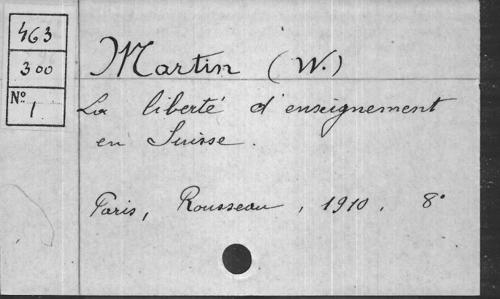 463
300
No. 1
Martin (W.)
La liberté d'enseignement
en Suisse.
Paris, Rousseau, 1910. 8°